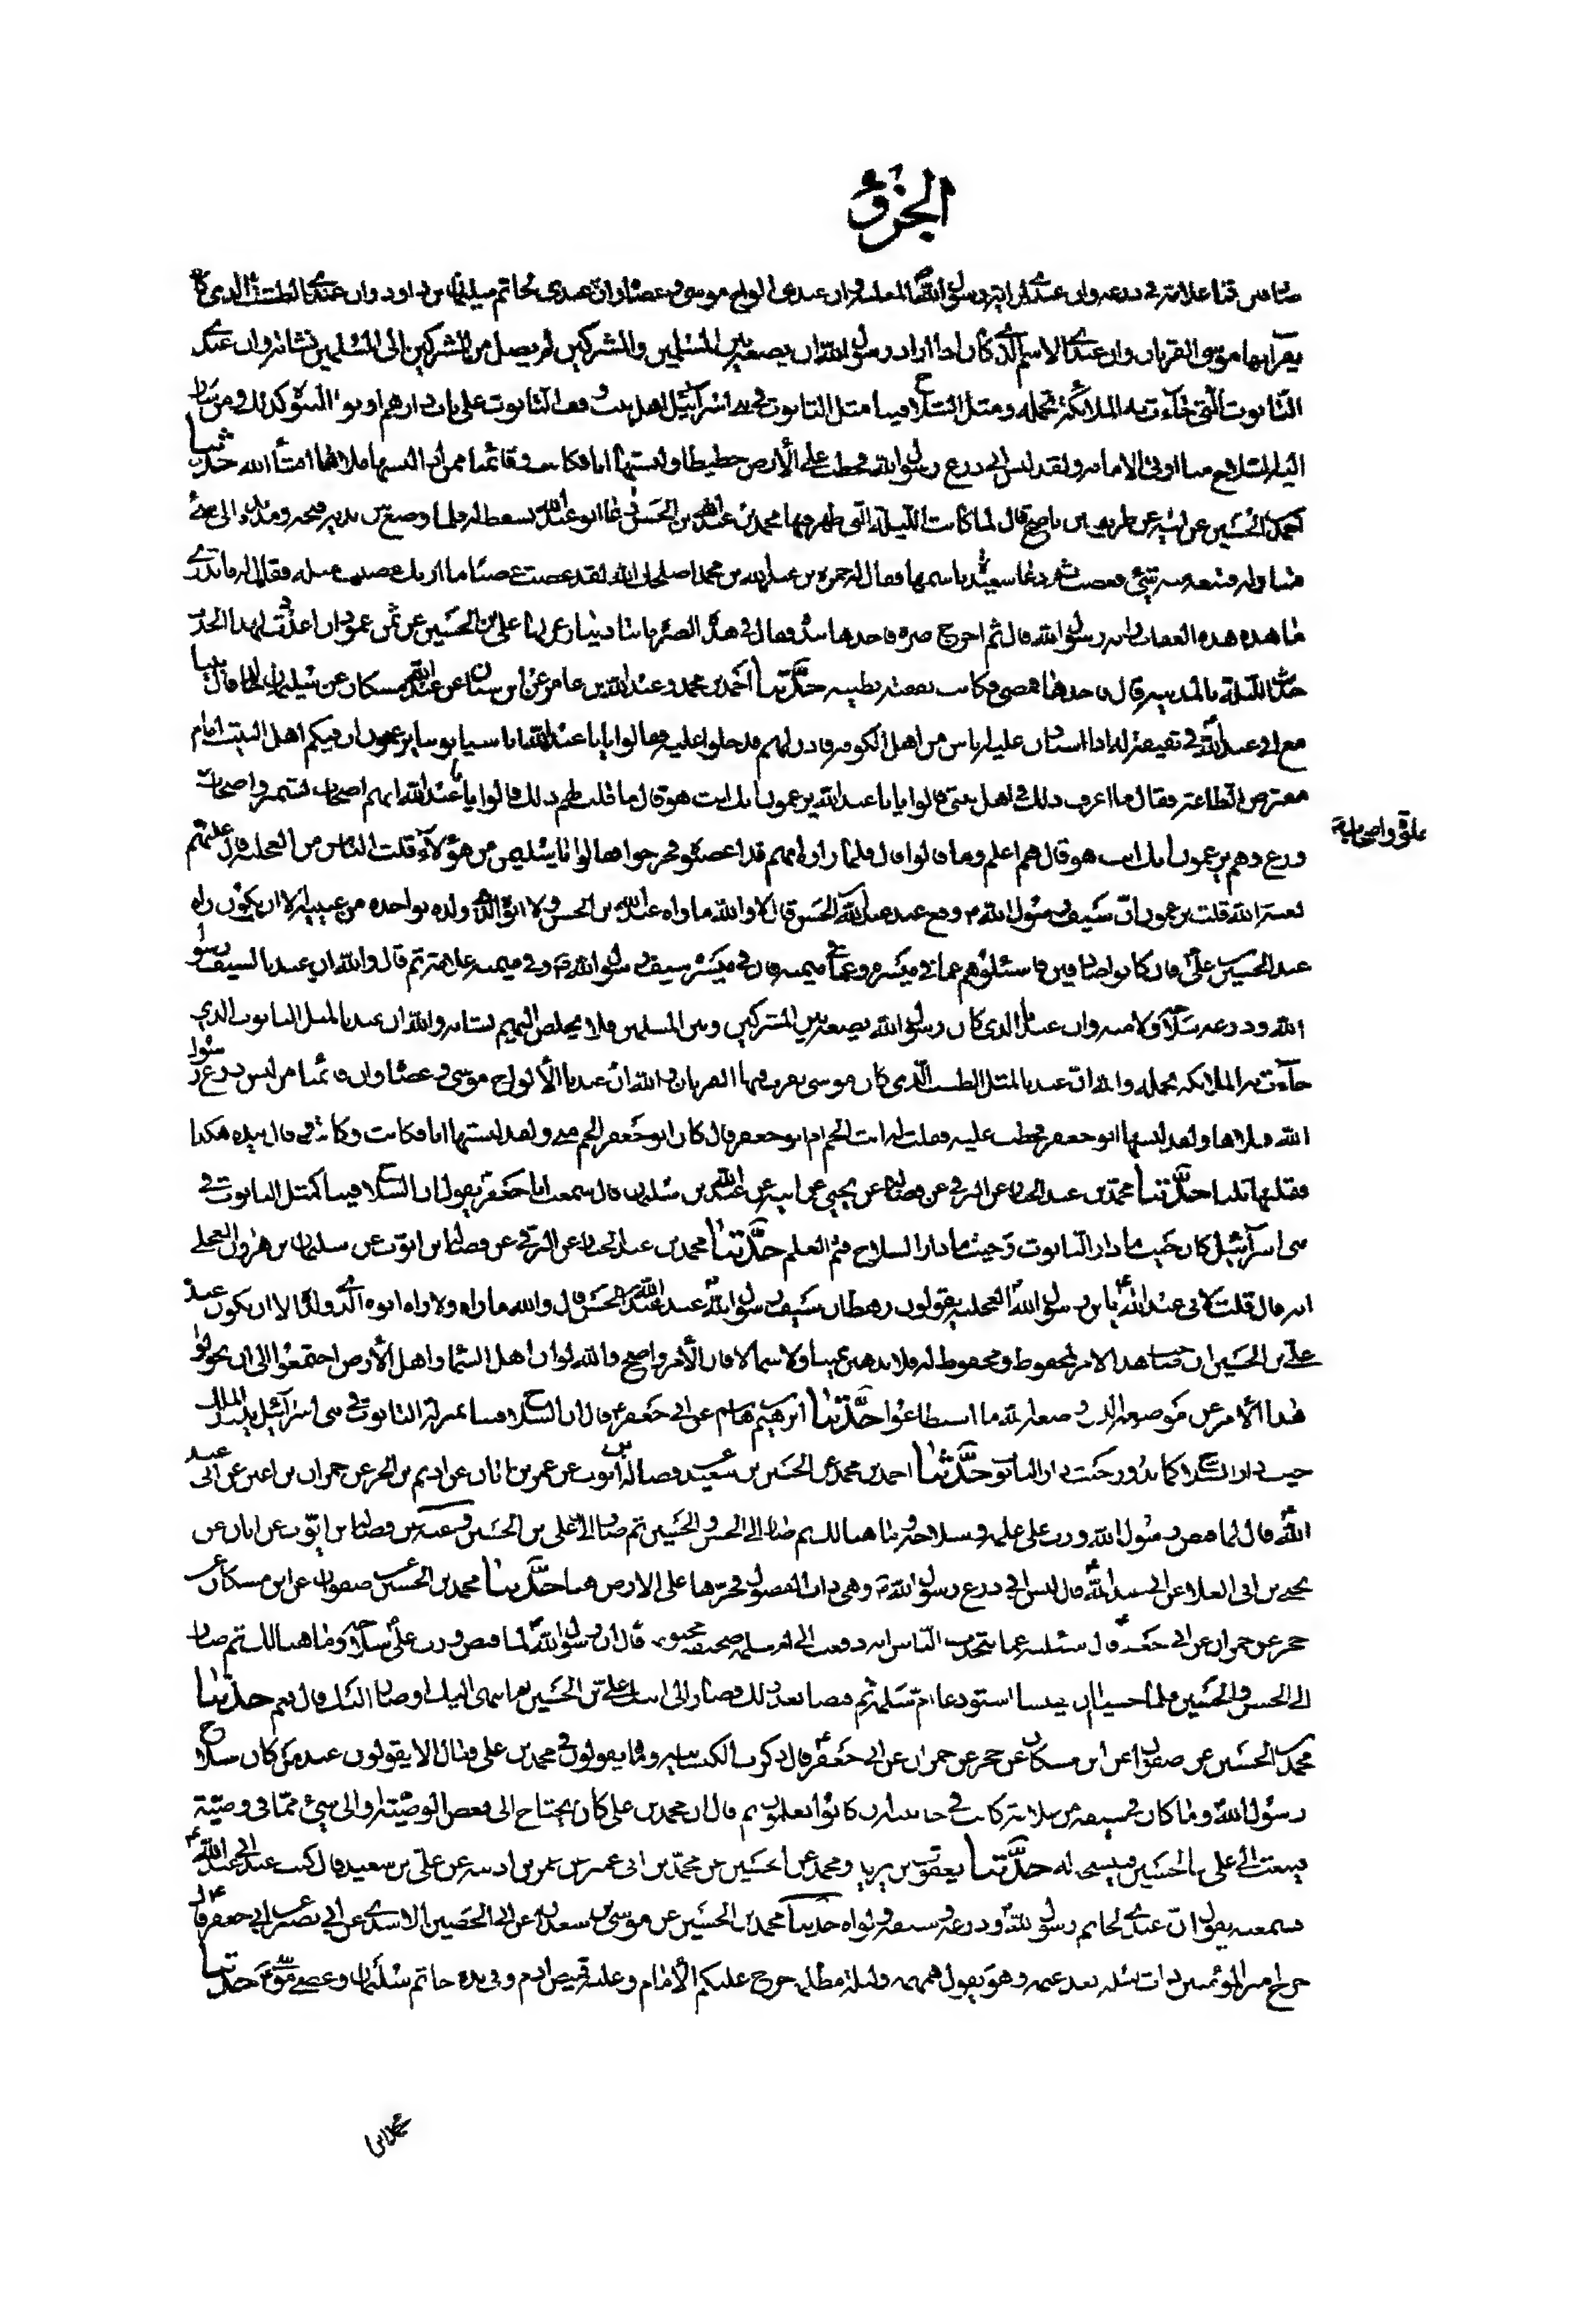 الجزؤ
صادقين فما علامة في درعه وان عندي لراية رسول الله المغلبة وان عندي الواح موسى وعصاه وان عندي لخاتم سليمان بن داود وان عندي الطست الذي كان
يقرب بها موسى القربان وان عندي الاسم الذي كان اذا اراد رسول الله ان يضعه بين المسلمين والمشركين لم يصل من المشركين الى المسلمين نشابة وان عندي
التابوت التي جاءت به الملائكة تحمله ومثل السلاح فينا مثل التابوت في بني اسرائيل اهل بيت وقف التابوت على باب دارهم اوتوا النبوة كذلك ومن صار
اليه السلاح منا اوتى الامامة ولقد لبس ابي درع رسول الله فخطت على الأرض خطيطا ولبستها انا فكانت وقائمنا ممن اذا لبسها ملاها انشأ الله حدثنا
محمد بن الحسين عن ابيه عن طريف بن ناصح قال لما كانت الليلة التي ظهر فيها محمد بن عبد الله بن الحسن دعا ابو عبد الله بسفط له فلما وضع بين يديه فتحه ومد يده الى شئ
هذه العقاب راية رسول الله قال ثم اخرج صرة فاخذها بيده فقال في هذه الصرة مائتا دينار عزلها علي بن الحسين عن ثمن عمودان اعدت لهذا الحدث
حدث الليلة بالمدينة قال فاخذها فمضى فكانت نفقته بطيبه حدثنا احمد بن محمد وعبد الله بن عامر عن ابن سنان عن عبد الله بن مسكان عن سليمان بن خالد قال بينا
مع ابي عبد الله في ثقيفة له اذا استاذن عليه اناس من اهل الكوفة فاذن لهم فدخلوا عليه فقالوا يابا عبد الله ان اناسا ياتوننا يزعمون ان فيكم اهل البيت امام
مفترض الطاعة فقال ما اعرف ذلك في اهل بيتي قالوا يابا عبد الله يزعمون انك انت هو قال ما قلت لهم ذلك قالوا يابا عبد الله انهم اصحاب تشمير واصحاب
خلوة واصحاب
ورع وهم يزعمون انك انت هو قال هم اعلم وما قالوا قال فلما راوا انهم قد اغضبوه فخرجوا فقال يا سليمن من هؤلاء قلت اناس من العجلية قال عليهم
لعنة الله قلت يزعمون ان سيف رسول الله وقع عند عبد الله بن الحسن قال لا والله ما راه عبد الله بن الحسن ولا ابوه الذي ولده بواحدة من عينيه الا ان يكون راه
عند الحسين بن علي فان كانوا صادقين فاسئلوهم عما في ميسره وعما في ميمنه فان في ميسرة سيف رسول الله وفي ميمنه علامة ثم قال والله ان عندنا لسيف رسول
الله ودرعه وسلاحه ولامته وان عندنا الذي كان رسول الله يضعه بين المشركين وبين المسلمين فلا يخلص اليهم نشابة والله ان عندنا لمثل التابوت الذي
جاءت به الملائكة تحمله والله ان عندنا لمثل الطست الذي كان موسى يقرب فيها القربان والله ان عندنا الألواح موسى وعصاه وان قائمنا من لبس درع رسول
الله فملاها ولقد لبسها ابو جعفر فخطت عليه فقلت له انت الحم ام ابو جعفر قال كان ابو جعفر الحم مني ولقد لبستها انا فكانت وكانت وقال بيده هكذا
فقلبها ثلثا حدثنا محمد بن عبد الجبار عن البرقي عن فضالة عن يحيى عن ابيه عن عبد الله بن سليمان قال سمعت ابا جعفر يقول ان السلاح فينا كمثل التابوت في
بني اسرآئيل كان حيث ما دار التابوت وحيث ما دار السلاح فثم العلم حدثنا محمد بن عبد الجبار عن البرقي عن فضالة بن ايوب عن سليمان بن هرون العجلي
انه قال قلت لابي عبد الله يا بن رسول الله العجلية يقولون رهطا ان سيف رسول الله عند عبد الله بن الحسن قال والله ما راه ولا راه ابوه الذي ولده الا ان يكون عند
علي بن الحسين ان صاحب هذا الامر لمحفوظ ومحفوظ له فلا يذهبن يمينا ولا شمالا فان الأمر واضح والله لو ان اهل السماء واهل الأرض اجتمعوا الى ان يحولوا
هذا الامر عن موضعه الذي وضعه الله ما استطاعوا حدثنا ابرهيم هاشم عن ابي جعفر قال ان السلاح فينا بمنزلة التابوت في بني اسرآئيل يدور الملك
حيث دار السلاح كما يدور حيث دار التابوت حدثنا احمد بن محمد عن الحسين بن سعيد عن فضالة بن ايوب عن عمر بن ابان عن اديم بن الحر عن حمران بن اعين عن ابي عبد
الله قال لما قبض رسول الله ورث علي علمه وسلاحه وما هنالك ثم صار الى الحسن والحسين ثم صار الى علي بن الحسين وعنه عن فضالة بن ايوب عن ابان عن
يحيى بن ابي العلا عن ابي عبد الله قال لبس ابي درع رسول الله وهي ذات الفضول فجرها على الارض حدثنا محمد بن الحسين عن صفوان عن ابن مسكان عن
حجر عن حمران عن ابي جعفر قال سئلته عما يتحدث الناس انه دفعت الى ام سلمة صحيفة مختومة قال ان رسول الله لما قبض ورث علي سلاحه وما هنالك ثم صار
الى الحسن والحسين فلما خشيا ان يفتشا استودعا ام سلمة ثم قبضا بعد ذلك فصار الى ابيك علي بن الحسين ثم انتهى اليك او صار اليك قال نعم حدثنا
محمد بن الحسين عن صفوان عن ابن مسكان عن حجر عن حمران عن ابي جعفر قال ذكرت الكيسانية وما يقولون في محمد بن علي فقال الا يقولون عند من كان سلاح
رسول الله وما كان في سيفه من علامة كانت في جانبيه ان كانوا يعلمون ثم قال ان محمد بن علي كان يحتاج الى بعض الوصية او الى شئ مما في وصيته
فيبعث الى علي بن الحسين فينسخه له حدثنا يعقوب بن يزيد ومحمد بن الحسين عن محمد بن ابي عمير عن عمر بن اذينة عن علي بن سعيد قال كنت عند ابي عبد الله
فسمعته يقول ان عندي لخاتم رسول الله ودرعه وسيفه ولواه حدثنا محمد بن الحسين عن موسى بن سعدان عن ابي الحصين الاسدي عن ابي بصير عن ابي جعفر قال
خرج امير المؤمنين ذات ليلة بعد عتمه وهو يقول همهمه وليلة مظلمة خرج عليكم الأمام وعليه قميص ادم وفي يده خاتم سليمان وعصى موسى حدثنا